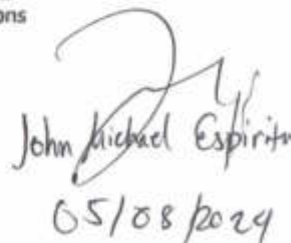 ons
John Michael Espiritu
05/08/2024